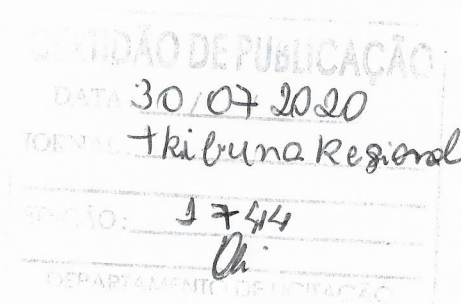 CERTIDÃO DE PUBLICAÇÃO
DATA 30/07 2020
JORNAL: Tribuna Regional
EDIÇÃO: 1744
DEPARTAMENTO DE LICITAÇÃO